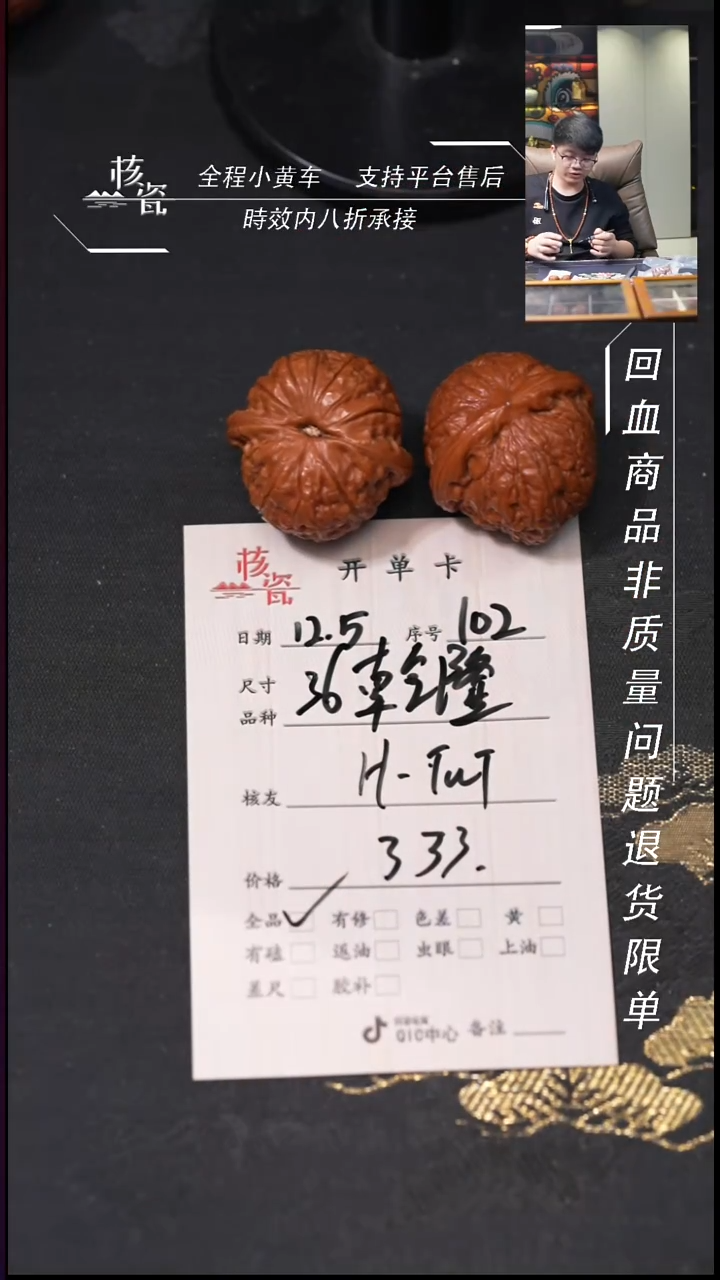 核瓷
全程小黄车 支持平台售后
時效内八折承接
回血商品非质量问题退货限单
核瓷
开单卡
日期 12.5 序号 102
尺寸 36
品种
核友 H-TuT
价格 333.
全品 有修 色差 黄
有磕 返油 虫眼 上油
差尺 胶补
QIC中心 备注